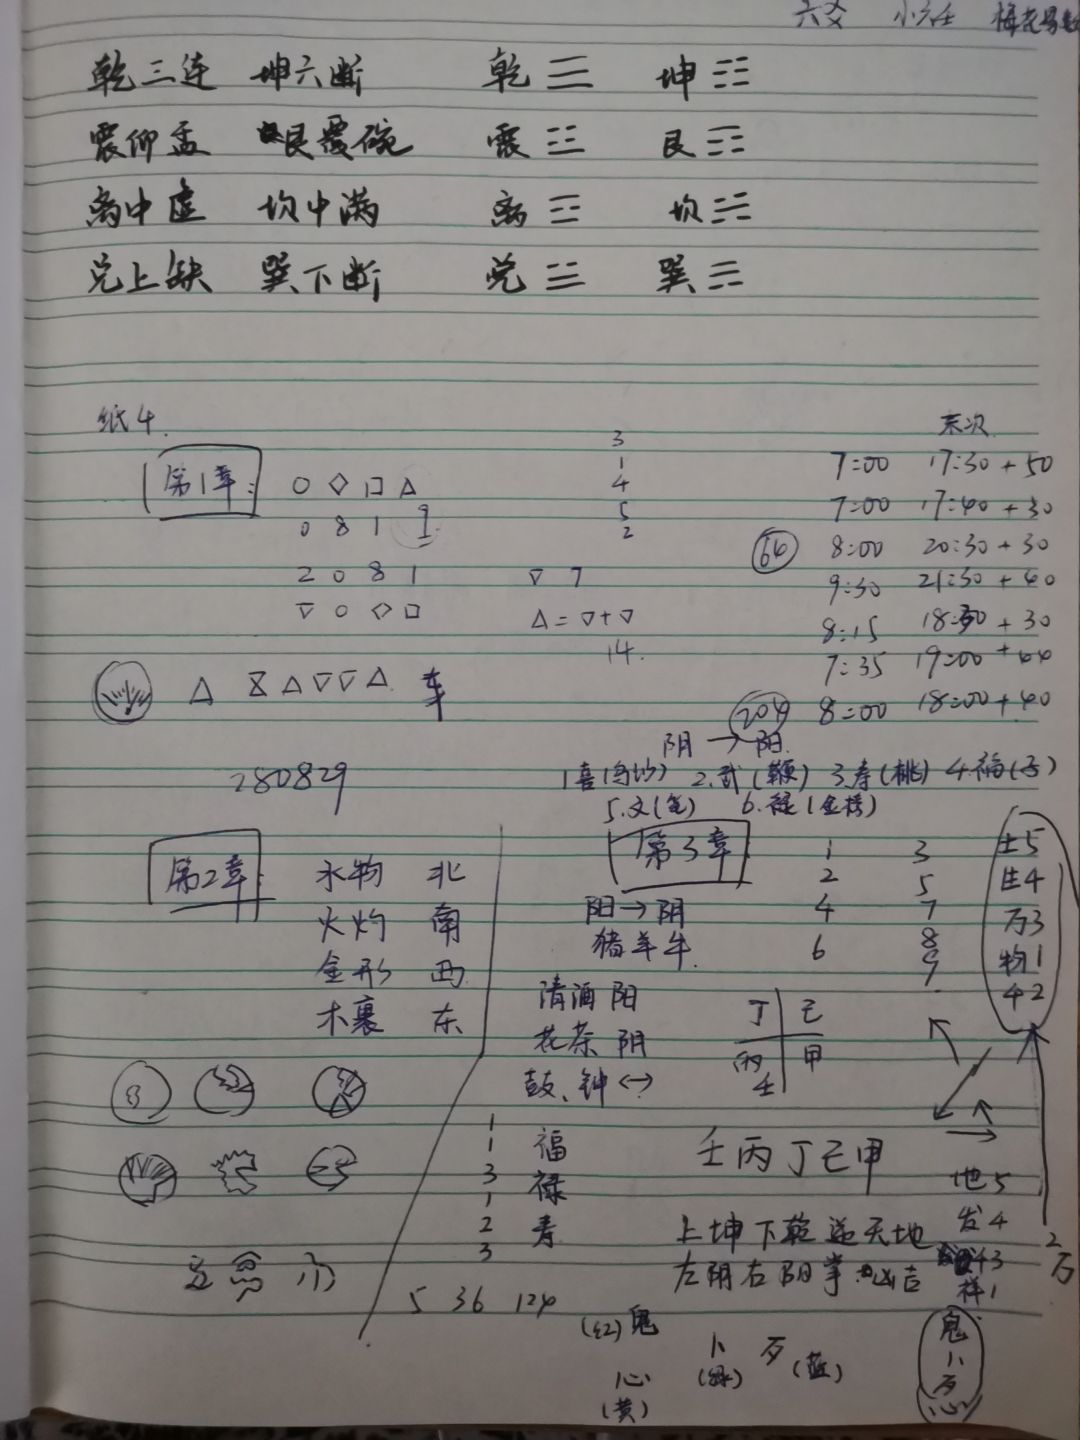 六爻 小六壬 梅花易数
乾三连 坤六断 乾 ☰ 坤 ☷
震仰盂 艮覆碗 震 ☳ 艮 ☶
离中虚 坎中满 离 ☲ 坎 ☵
兑上缺 巽下断 兑 ☱ 巽 ☴
纸4.
第1章: ○ ◇ □ △
0 8 1 9
2 0 8 1
▽ ○ ◇ □
3
1
4
5
2
▽ 7
△=▽+▽
14.
末次
7:00 17:30+50
7:00 17:40+30
64 8:00 20:30+30
9:30 21:30+40
8:15 18:30+30
7:35 19:00+44
204 8:00 18:00+40
△ △▽▽△ 车
280829
阴→阳
1喜 2.武(鞭) 3.寿(桃) 4.福
5.文(笔) 6.禄(金榜)
第2章: 水物 北
火灼 南
金形 西
木裹 东
立 小
第3章
阳→阴
猪羊牛
清酒 阳
花茶 阴
鼓、钟↔
1
2
4
6
3
5
7
8
9
土5
生4
万3
物1
42
丁 己
丙 甲
壬
壬丙丁己甲
1
1
3
1
2
3
福
禄
寿
上坤下乾逆天地
左阴右阳掌凶吉
地5
发4
43
样1
2万
5 36 124
(红)鬼
卜(绿)
歹(蓝)
心(黄)
鬼
卜
歹
心